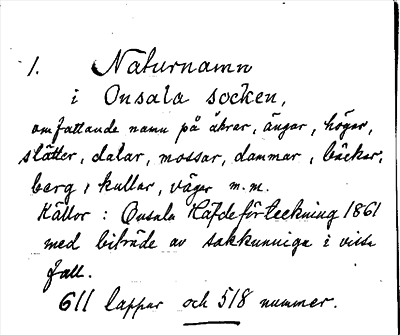 1. Naturnamn
i Onsala socken,
omfattande namn på åkrar, ängar, högar,
slätter, dalar, mossar, dammar, bäckar,
berg, kullar, vägar m.m.
Källor: Onsala Häfdeförteckning 1861
med biträde av sakkunniga i vissa
fall.
611 lappar och 518 nummer.